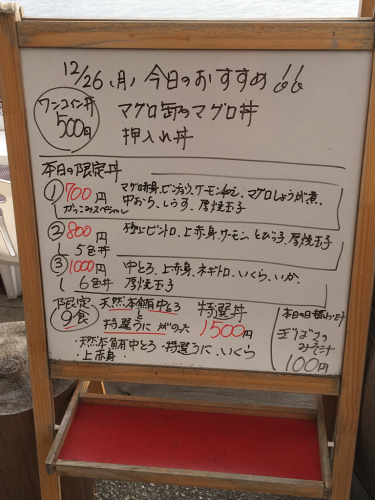 12/26(月)今日のおすすめ!!
ワンコイン丼
500円
マグロ缶のマグロ丼
押入れ丼
本日の限定丼
① 700円
マグロ赤身、ビンチョウ、サーモン
マグロしょうが煮、
中おち、しらす、厚焼玉子
② 800円
ビントロ、上赤身、サーモン、とびっ子、厚焼玉子
5色丼
③ 1000円
中とろ、上赤身、ネギトロ、いくら、いか、
6色丼
厚焼玉子
限定
9食
天然本鮪中とろ
と
特選うに がのった
特選丼
1500円
・天然本鮪中とろ・特選うに、いくら
・上赤身
本日の日替わり汁
みそ汁
100円